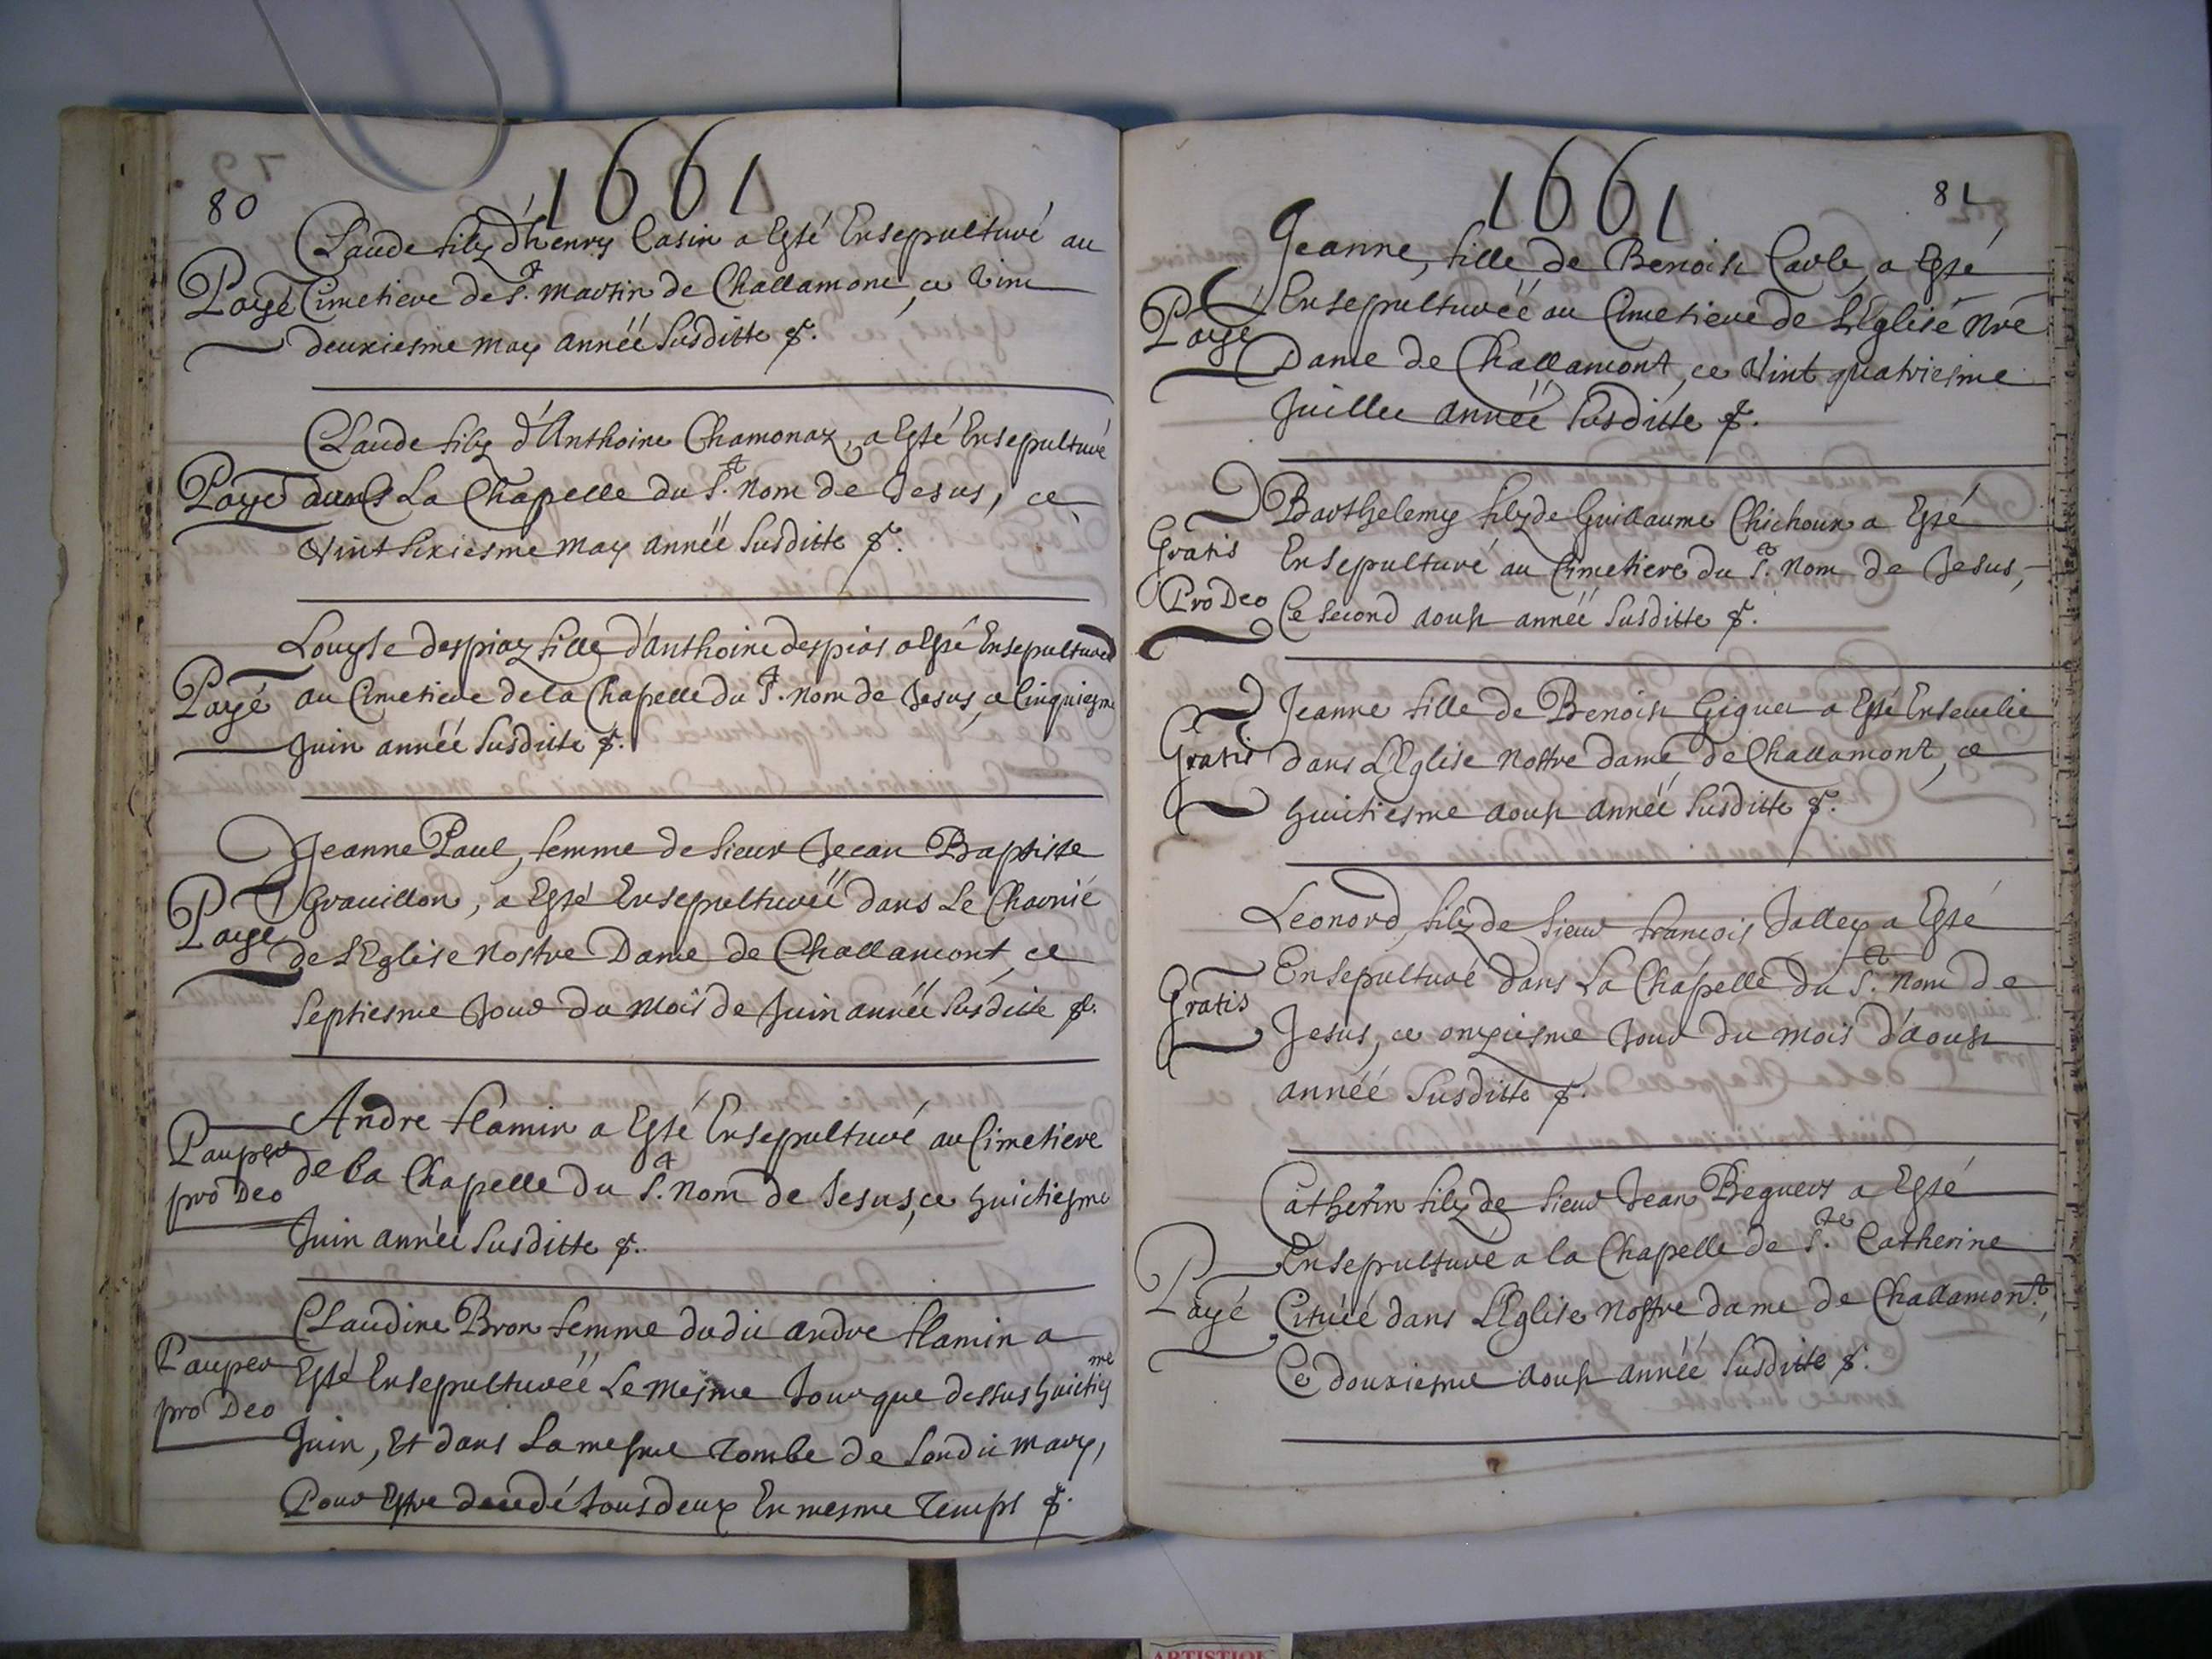 80
1661
Claude filz d'henry Casin a Esté Ensepulturé au
Payé Cimetiere de St. Martin de Challamont, ce vint
deuxiesme may année Susditte
Claude filz d'Anthoine Chamonaz, a Esté Ensepulturé
Payé dans La Chapelle du St. Nom de Jesus, ce
Vint sixiesme may année Susditte
Louyse despiaz fille d'Anthoine despias a Esté Ensepulturée
Payé au Cimetiere de la Chapelle du St. Nom de Jesus, ce Cinquiesme
Juin année Susditte
Jeanne Paul, femme de Sieur Jean Baptiste
Grauillon, a Esté Ensepulturée dans Le Charnié
Payé de L'Eglise Nostre Dame de Challamont, ce
Septiesme Jour du Mois de Juin année Susditte
Andre flamin a Esté Ensepulturé au Cimetiere
Pauper de La Chapelle du St. Nom de Jesus, ce huictiesme
pro Deo
Juin année Susditte
Claudine Bron femme dudit andre flamin a
Pauper Esté Ensepulturée Le mesme Jour que dessus huictiesme
pro Deo
Juin, Et dans La mesme Tombe de Sondit mary,
Pour Estre decedé tous deux En mesme Temps
1661
81
Jeanne, fille de Benoist Carle, a Esté
Payé Ensepulturée au Cimetiere de L'Eglise Nre
Dame de Challamont, ce Vint quatriesme
Juillet année Susditte
Barthelemy filz de Guillaume Chichoux a Esté
Gratis Ensepulturé au Cimetiere du St. Nom de Jesus,
Pro Deo Ce second aoust année Susditte
Jeanne fille de Benoist Giguet a Esté Enseuelie
Gratis dans L'Eglise Nostre dame de Challamont, ce
huictiesme aoust année Susditte
Leonord, filz de Sieur francois Jalley a Esté
Ensepulturé dans La Chapelle du St. Nom de
Gratis Jesus, ce onziesme Jour du mois d'aoust
année Susditte
Catherin filz de Sieur Jean Beguers a Esté
Ensepulturé a la Chapelle de Ste. Catherine
Payé Cituéé dans L'Eglise Nostre dame de Challamont,
Ce douxiesme aoust année Susditte
ARTISTIQUE